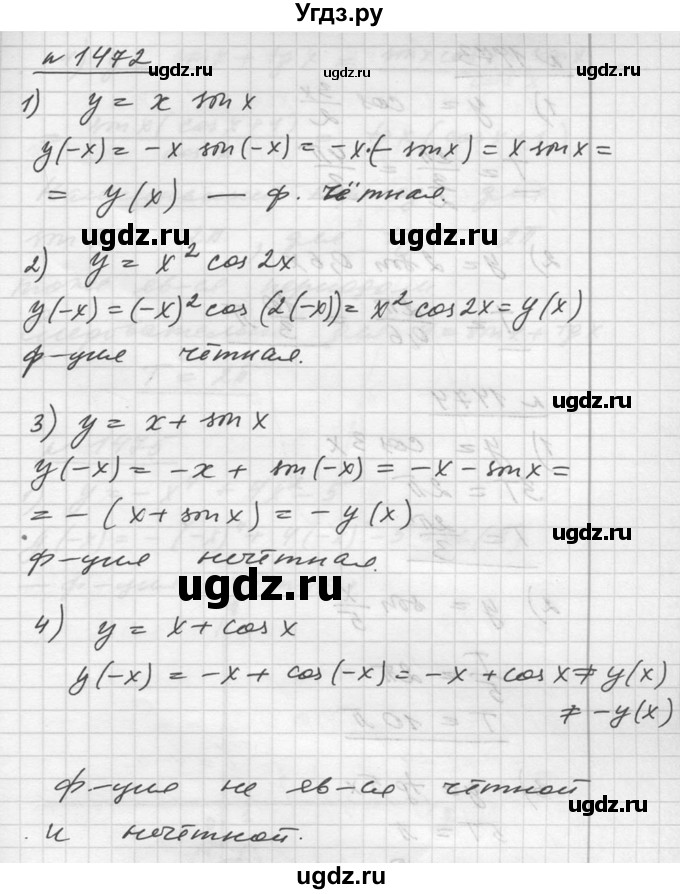 Угдз.ру
n 1472
1) y = x sin x
y(-x) = -x sin(-x) = -x·(-sin x) = x sin x =
= y(x) — ф. чётная.
2) y = x² cos 2x
y(-x) = (-x)² cos (2(-x)) = x² cos 2x = y(x)
ф-ция чётная.
3) y = x + sin x
y(-x) = -x + sin(-x) = -x - sin x =
= - (x + sin x) = - y(x)
ф-ция нечётная.
4) y = x + cos x
y(-x) = -x + cos(-x) = -x + cos x ≠ y(x)
≠ -y(x)
ф-ция не яв-ся чётной
и нечётной.
ugdz.ru
ugdz.ru
ugdz.ru
ugdz.ru
ugdz.ru
ugdz.ru
ugdz.ru
ugdz.ru
ugdz.ru
ugdz.ru
ugdz.ru
ugdz.ru